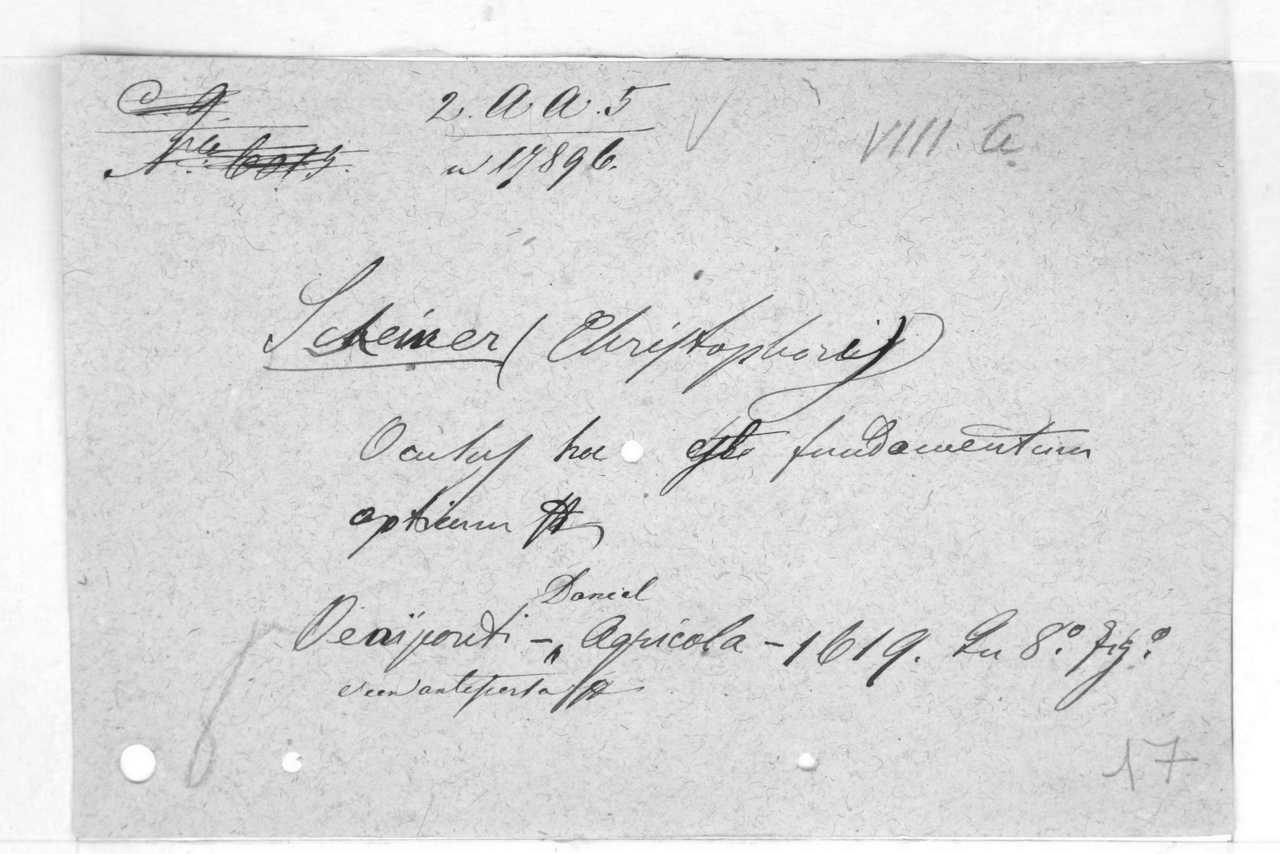 C. 9. 2. A A. 5 VIII. A.
N.ro 6015. n 17896.
Scheiner (Christophorus)
Oculus hoc est fundamentum
opticum
Daniel
Oeniponti - Agricola - 1619. In 8.° fig.°
con antiporta
17